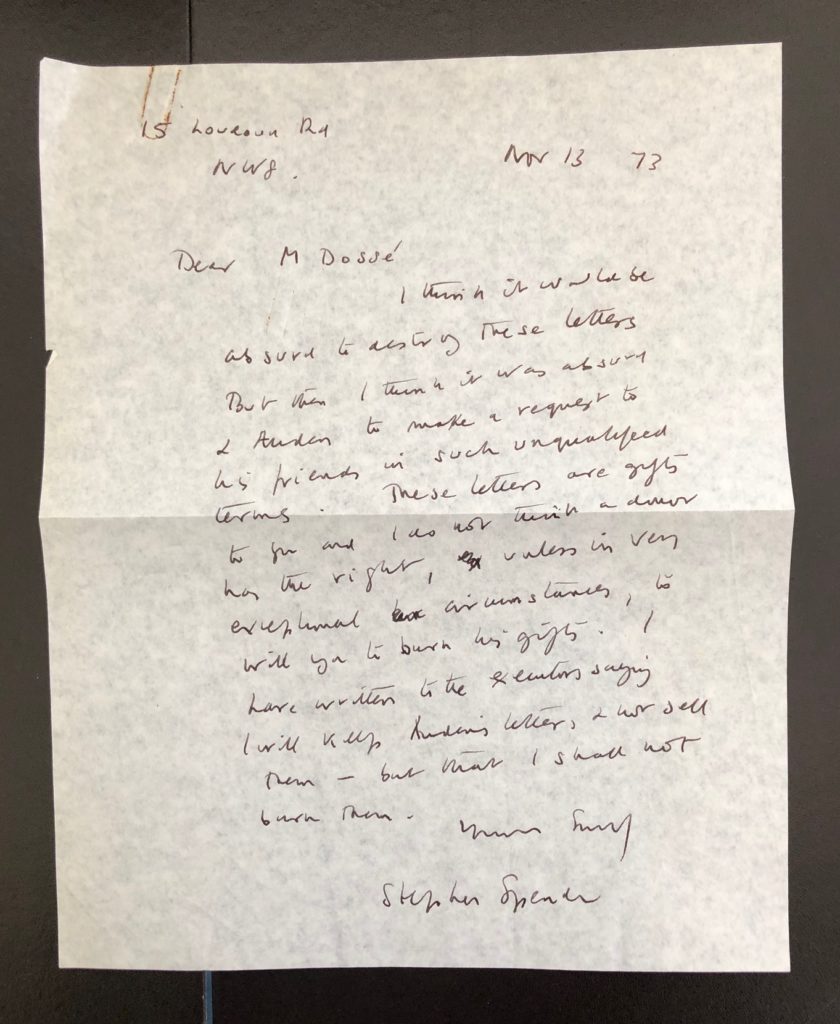 15 Loudoun Rd
NW8.
Nov 13 73
Dear M Dossé
I think it would be
absurd to destroy these letters
But then I think it was absurd
Auden to make a request to
his friends in such unqualified
terms. These letters are gifts
to you and I do not think a donor
has the right, unless in very
exceptional circumstances, to
will you to burn his gifts. I
have written to the executors saying
I will keep Auden's letters, & not sell
them – but that I shall not
burn them.
Yours
Stephen Spender